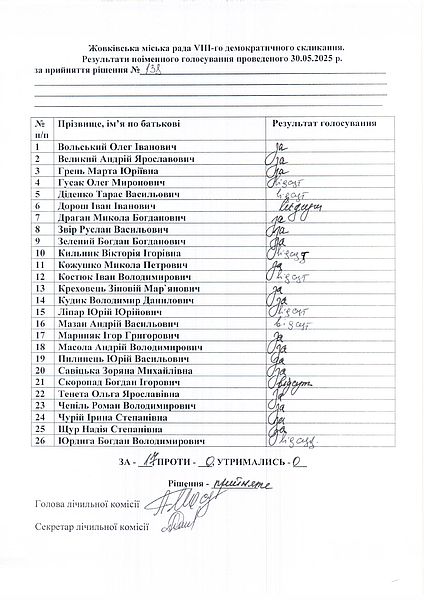 Жовківська міська рада VIII-го демократичного скликання.
Результати поіменного голосування проведеного 30.05.2025 р.
за прийняття рішення № 138
№ п/п Прізвище, ім’я по батькові Результат голосування
1 Вольський Олег Іванович за
2 Великий Андрій Ярославович за
3 Грень Марта Юріївна за
4 Гусак Олег Миронович відсут
5 Діденко Тарас Васильович відсут
6 Дорош Іван Іванович відсутн
7 Драган Микола Богданович за
8 Звір Руслан Васильович за
9 Зелений Богдан Богданович за
10 Кильник Вікторія Ігорівна відсут
11 Кожушко Микола Петрович за
12 Костюк Іван Володимирович відсут
13 Креховець Зіновій Мар`янович за
14 Кудик Володимир Данилович за
15 Ліпар Юрій Юрійович відсут
16 Мазан Андрій Васильович відсут
17 Мариняк Ігор Григорович за
18 Масола Андрій Володимирович за
19 Пилипець Юрій Васильович за
20 Савіцька Зоряна Михайлівна за
21 Скоропад Богдан Ігорович відсут
22 Тенета Ольга Ярославівна за
23 Чепіль Роман Володимирович за
24 Чурій Ірина Степанівна за
25 Щур Надія Степанівна за
26 Юрдига Богдан Володимирович відсут
ЗА - 17 ПРОТИ - 0 УТРИМАЛИСЬ - 0
Рішення - прийняте
Голова лічильної комісії
Секретар лічильної комісії